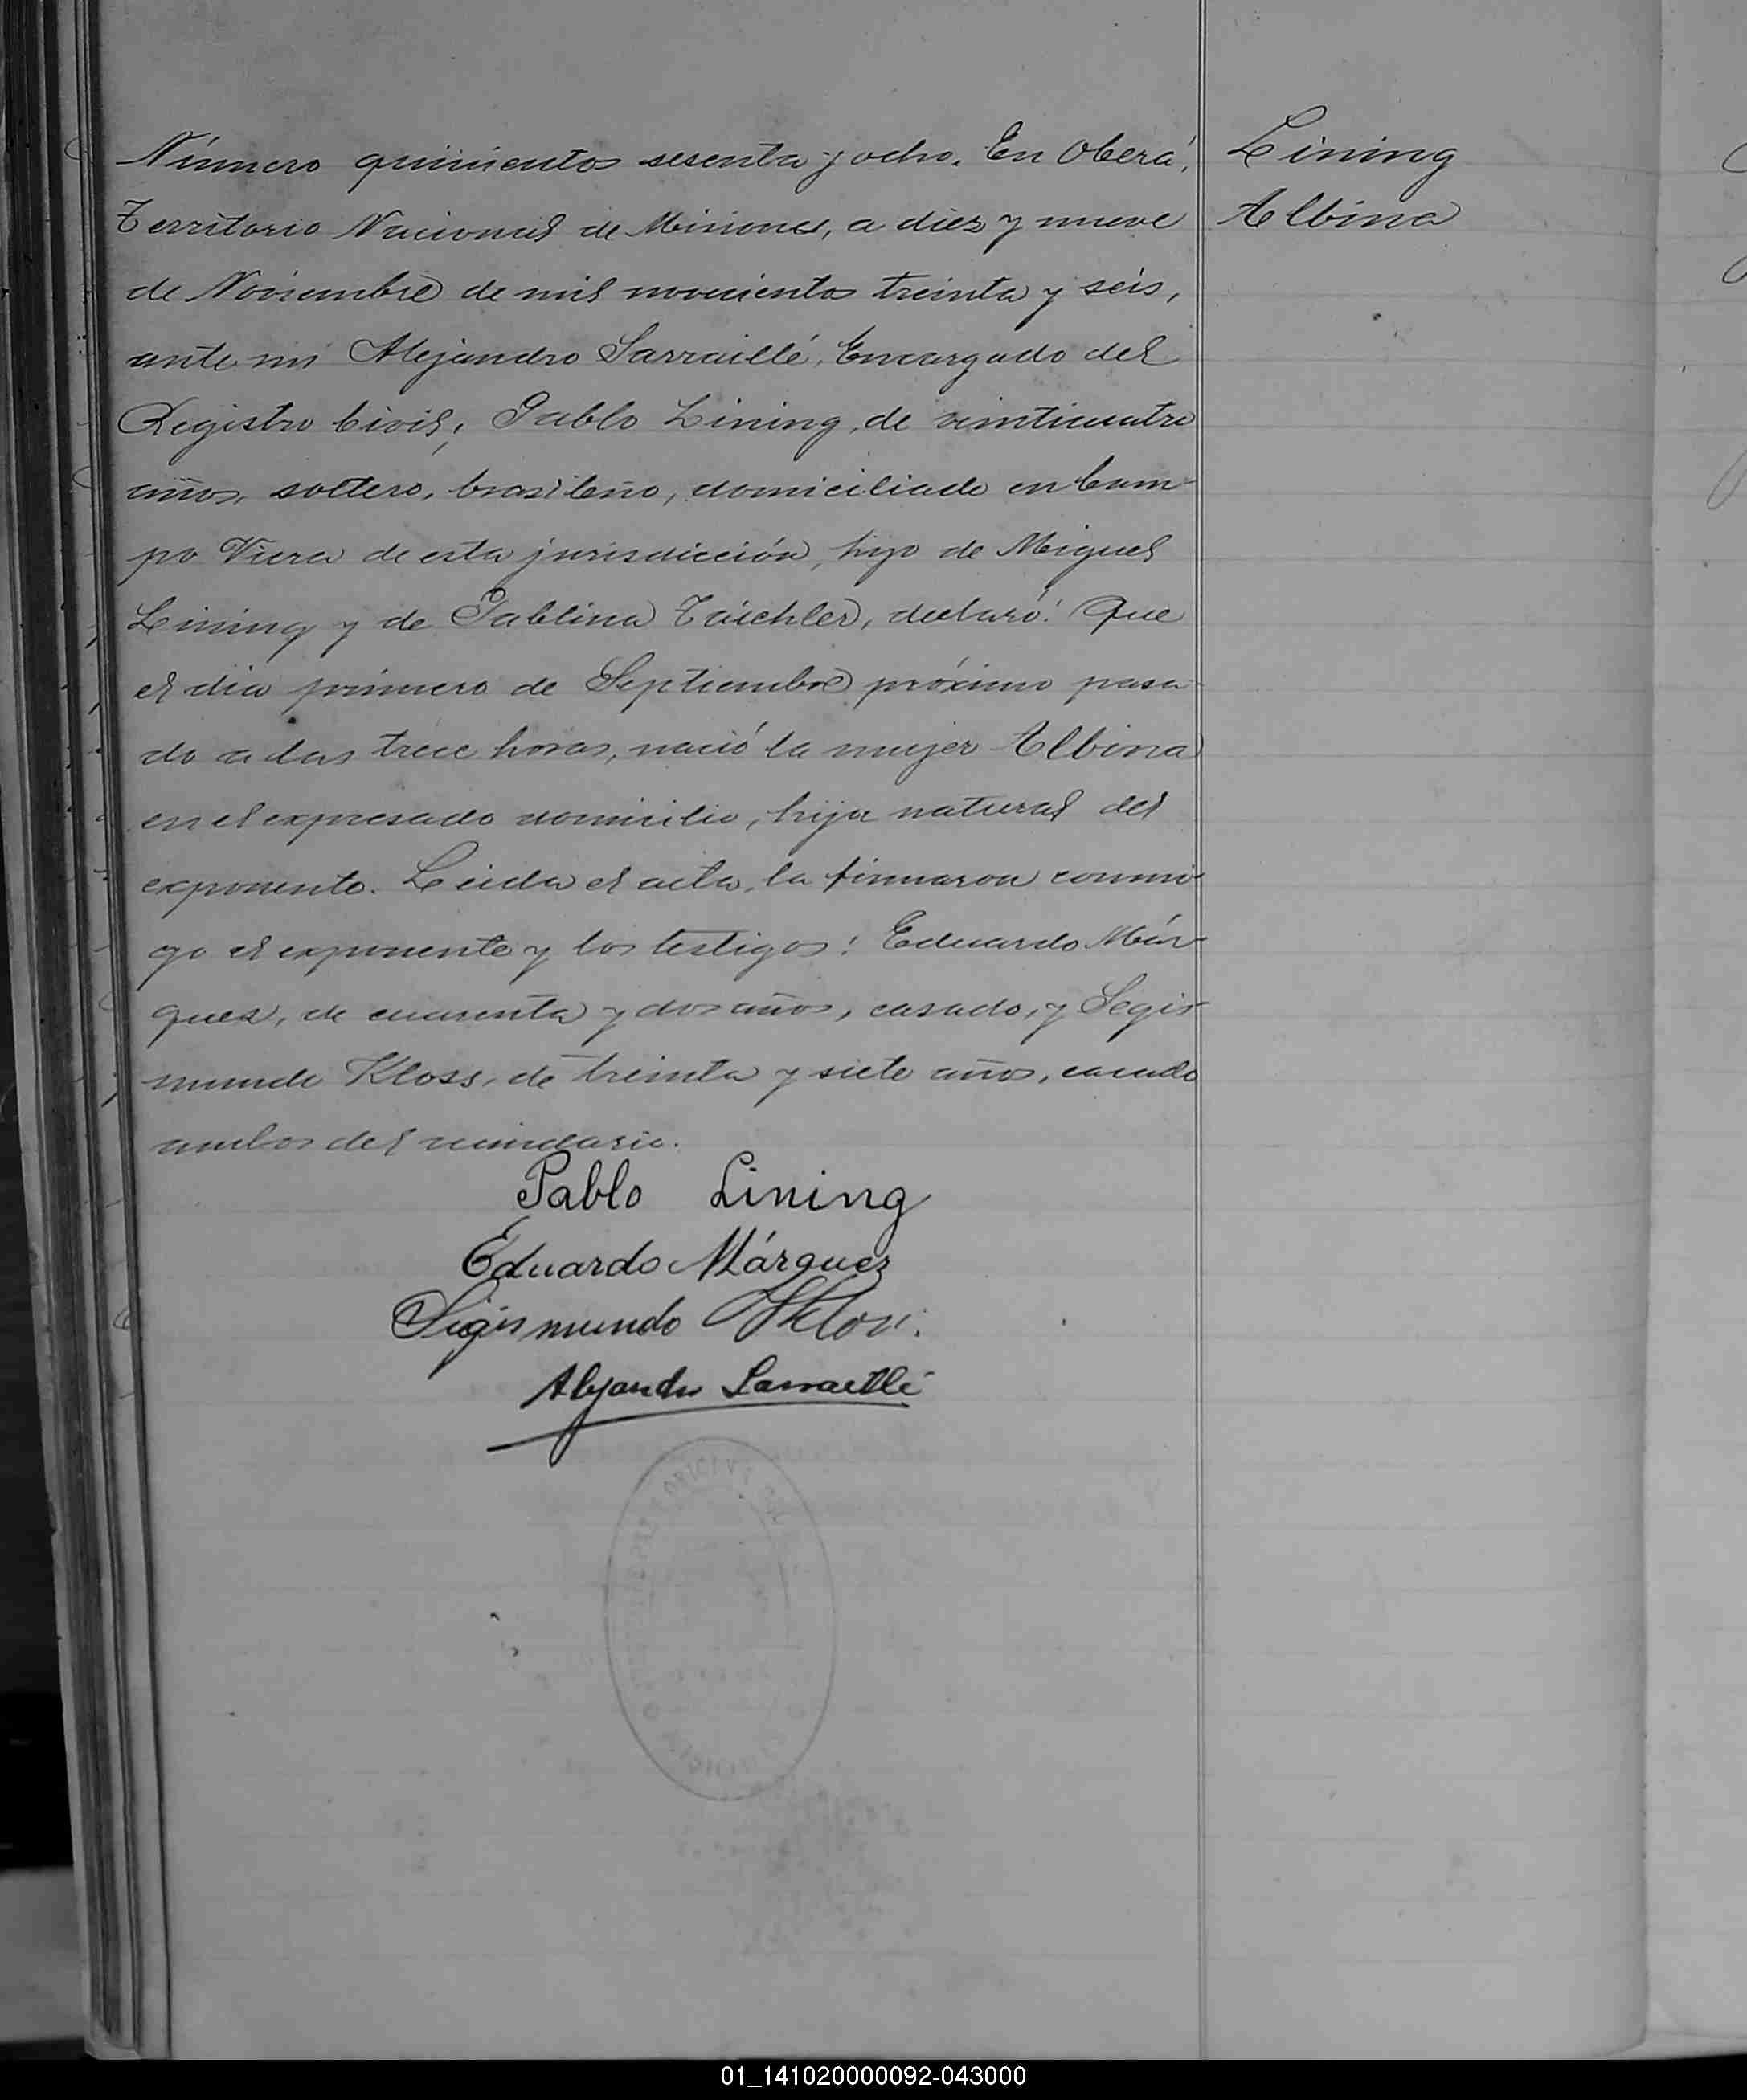 Número quinientos sesenta y ocho. En Oberá,
Territorio Nacional de Misiones, a diez y nueve
de Noviembre de mil novecientos treinta y seis,
ante mi Alejandro Sarraillé, Encargado del
Registro Civil, Pablo Lining, de veinticuatro
años, soltero, brasileño, domiciliado en Cam-
po Viera de esta jurisdicción, hijo de Miguel
Lining y de Pablina declaró: Que
el día primero de Septiembre próximo pasa-
do a las trece horas, nació la mujer Albina
en el expresado domicilio, hija natural del
exponente. Leida el acta, la firmaron conmi-
go el exponente y los testigos: Eduardo Már-
quez, de cuarenta y dos años, casado, y Segis-
mundo Kloss, de treinta y siete años, casado
ambos del vecindario.
Pablo Lining
Eduardo Márquez
Sigismundo Kloss.
Alejandro Sarraillé
Lining
Albina
01_141020000092-043000